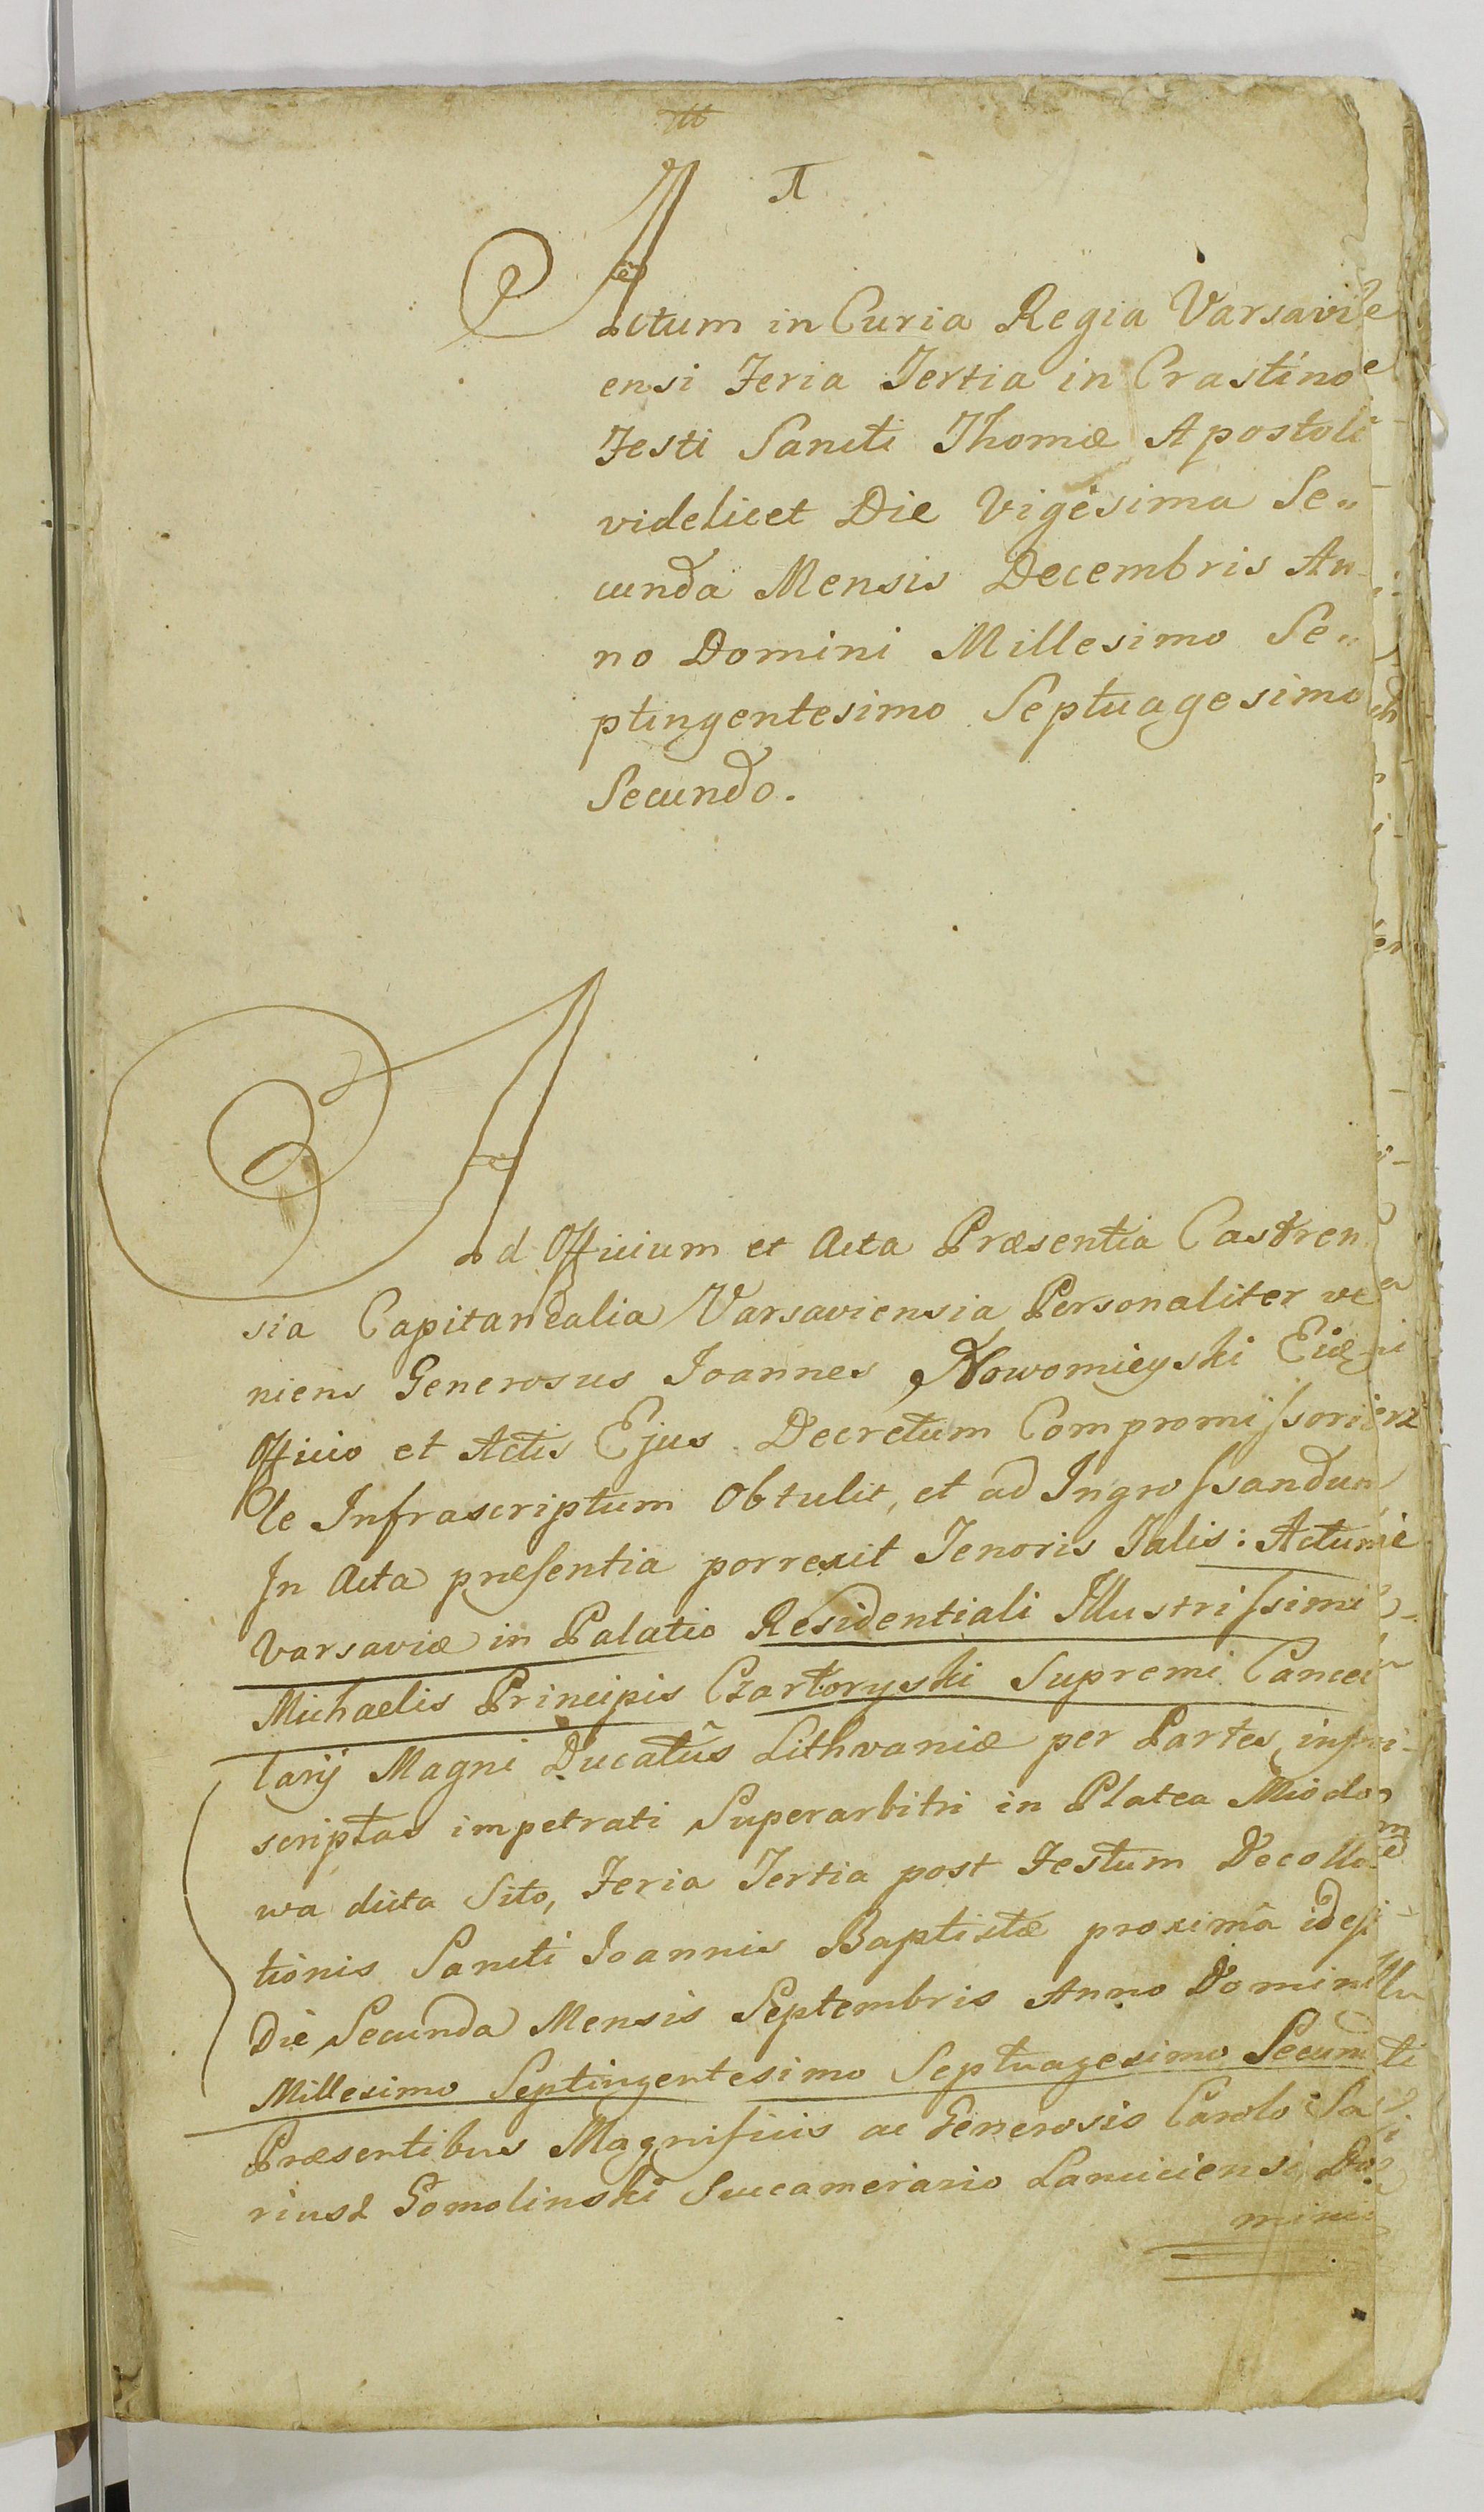 Actum in Curia Regia Varsavi
ensi Feria Tertia in Crastino
Festi Sancti Thomæ Apostoli
videlicet Die Vigesima Se„
cunda Mensis Decembris An
no Domini Millesimo Se„
ptingentesimo Septuagesimo
Secundo.
Ad Officium et Acta Præsentia Castren
sia Capitanealia Varsaviensia Personaliter ve
niens Generosus Joannes Nowomieyski Eidem
Officio et Actis Ejus Decretum Compromissoria
le Infrascriptum Obtulit, et ad Ingrossandum
In Acta præsentia porrexit Tenoris Talis: Actum
Varsaviæ in Palatio Residentiali Illustrissimi
Michaelis Principis Czartoryski Supremi Cancel
larij Magni Ducatûs Lithvaniæ per Partes infra
scriptas impetrati Superarbitri in Platea Miodo
wa dicta Sito, Feria Tertia post Festum Decolla
tionis Sancti Joannis Baptistæ proximâ idest
Die Secunda Mensis Septembris Anno Domini
Millesimo Septingentesimo Septuagesimo Secund
Præsentibus Magnificis ac Generosis Carolo Sa
riusz Gomolinski Succamerario Lanciciensi Do
mini